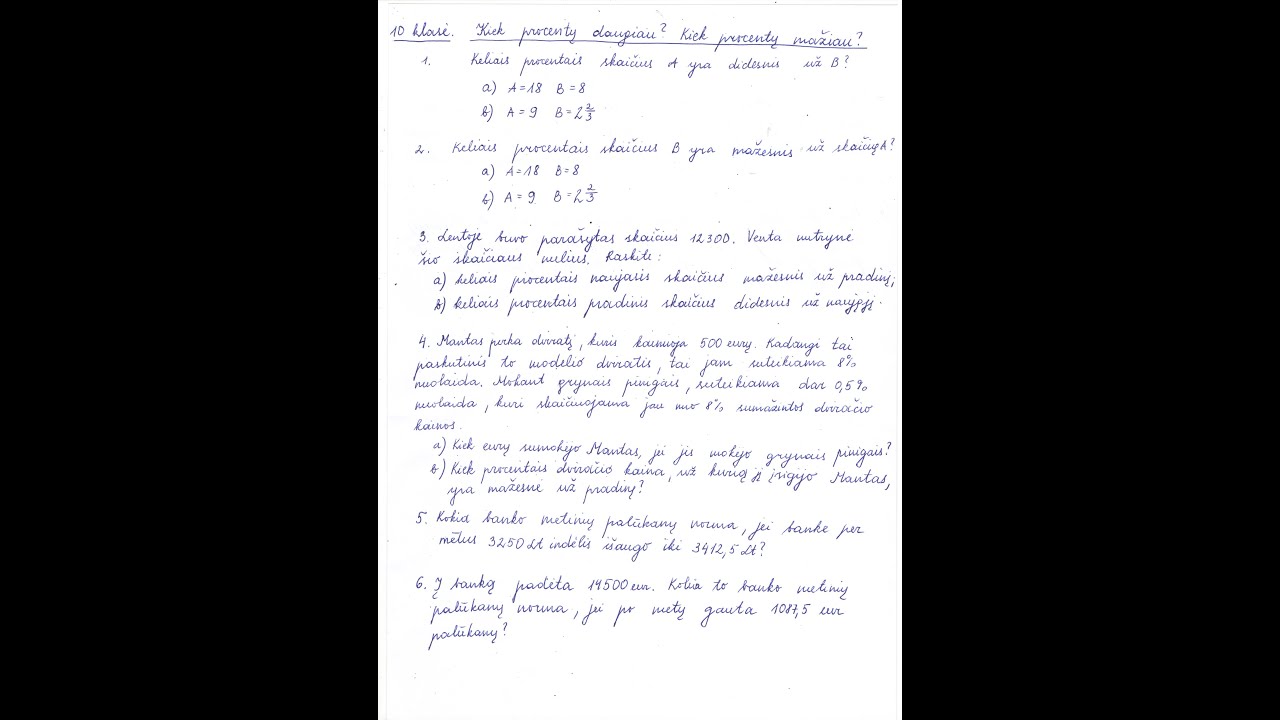 10 klasė. Kiek procentų daugiau? Kiek procentų mažiau?
1. Keliais procentais skaičius A yra didesnis už B?
a) A=18 B=8
b) A=9 B=2 2/3
2. Keliais procentais skaičius B yra mažesnis už skaičių A?
a) A=18 B=8
b) A=9 B=2 2/3
3. Lentoje buvo parašytas skaičius 12300. Venta nutrynė
šio skaičiaus nulius. Raskite:
a) keliais procentais naujasis skaičius mažesnis už pradinį;
b) keliais procentais pradinis skaičius didesnis už naująjį.
4. Mantas perka dviratį, kuris kainuoja 500 eurų. Kadangi tai
paskutinis to modelio dviratis, tai jam suteikiama 8%
nuolaida. Mokant grynais pinigais, suteikiama dar 0,5%
nuolaida, kuri skaičiuojama jau nuo 8% sumažintos dviračio
kainos.
a) Kiek eurų sumokėjo Mantas, jei jis mokėjo grynais pinigais?
b) Kiek procentais dviračio kaina, už kurią jį įsigijo Mantas,
yra mažesnė už pradinę?
5. Kokia banko metinių palūkanų norma, jei banke per
metus 3250 Lt indėlis išaugo iki 3412,5 Lt?
6. Į banką padėta 14500 eur. Kokia to banko metinių
palūkanų norma, jei po metų gauta 1087,5 eur
palūkanų?